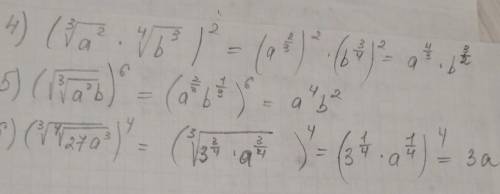 4) (∛a² · ∜b³)² = (a^(2/3))² · (b^(3/4))² = a^(4/3) · b^(3/2)
5) (√∛(a²b))⁶ = (a^(2/3) b^(1/3))⁶ = a⁴b²
6) (∛∜(27a³))⁴ = (∛(3^(3/4) · a^(3/4)))⁴ = (3^(1/4) · a^(1/4))⁴ = 3a